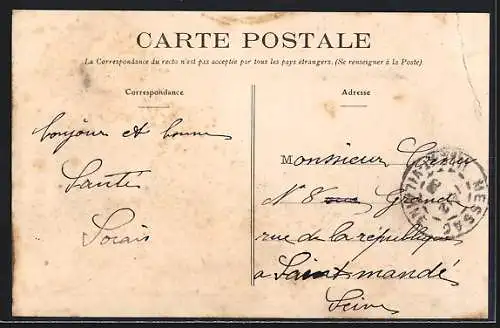 CARTE POSTALE
La Correspondance du recto n'est pas acceptée par tous les pays étrangers. (Se renseigner à la Poste)
Correspondance
Adresse
bonjour et bonne
Santé
Monsieur
N° 8 Grande
rue de la république
a Saint mandé
Seine
MESSAC